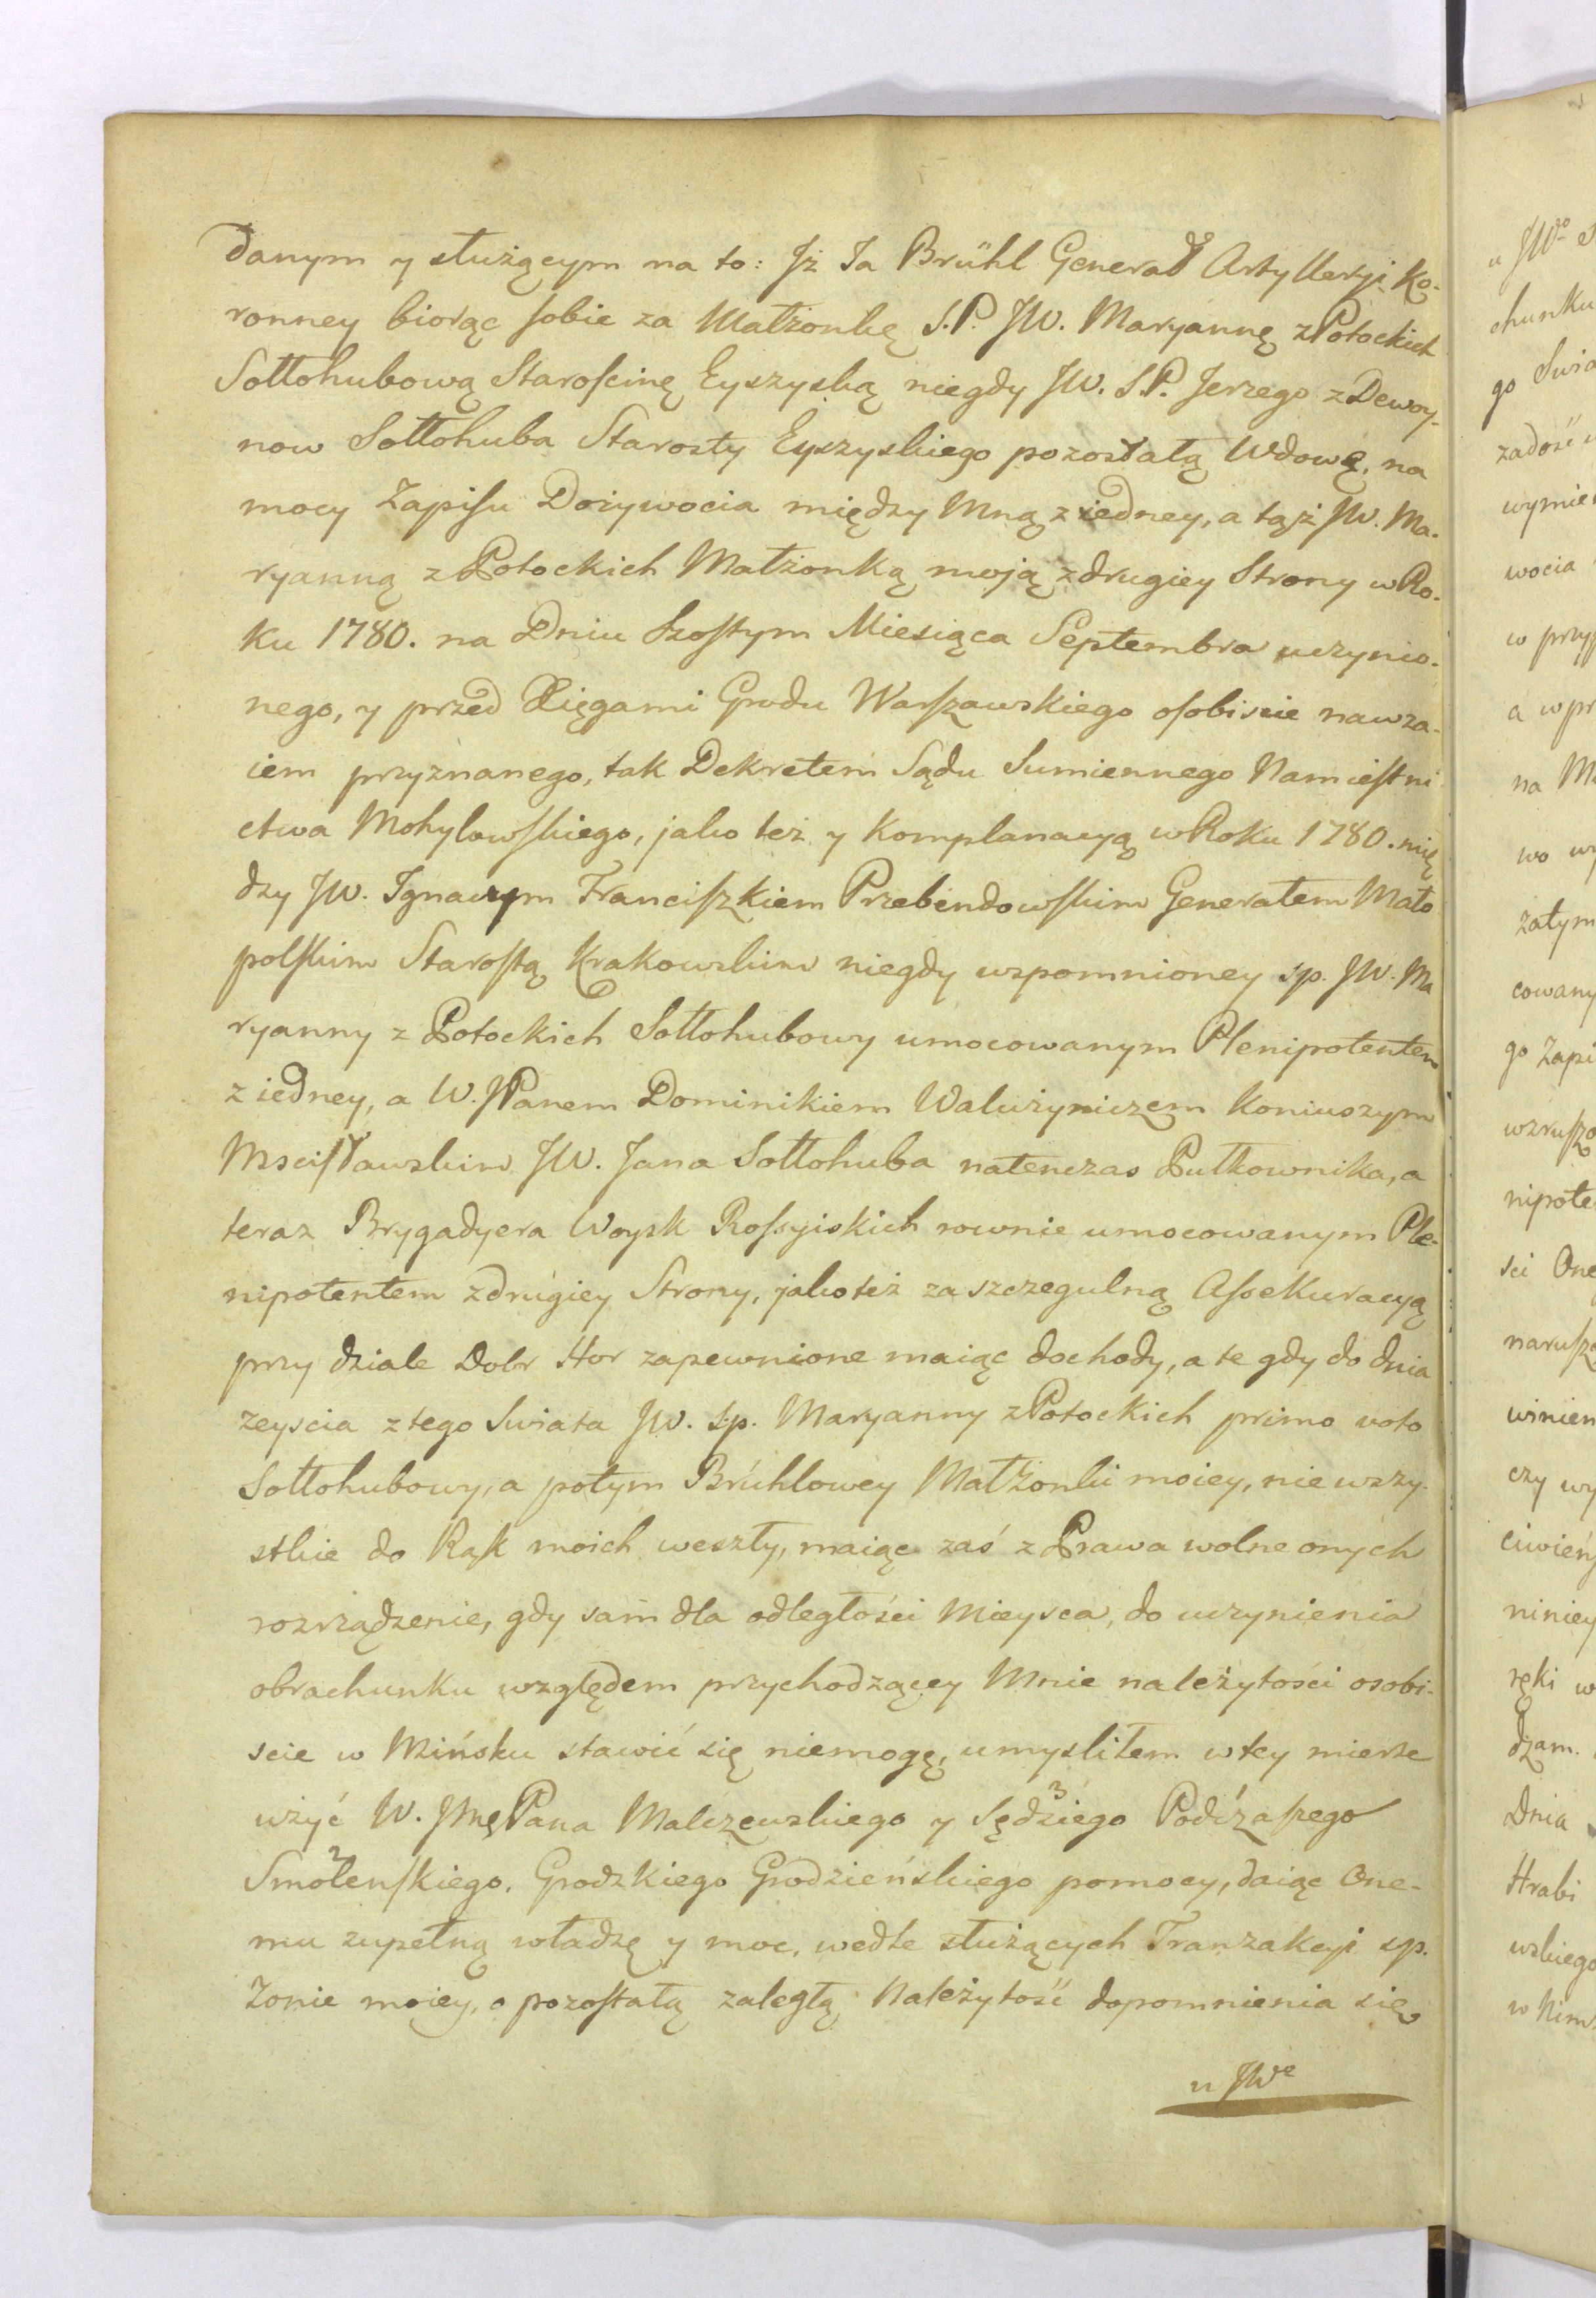 danym y służącym na to: Jż Ja Brühl Generał Artylleryi Ko-
ronney biorąc sobie za Małżonkę S.P. JW. Maryannę z Potockich
Sołłohubową Starościnę Eyszyską niegdy JW. S.P. Jerzego z Dewoy-
now Sołłohuba Starosty Eyszyskiego pozostałą Wdowę, na
mocy Zapisu Dożywocia między Mną z iedney, a tąż JW. Ma-
ryanną z Potockich Małżonką moją z drugiey Strony w Ro-
ku 1780. na Dniu Szostym Miesiąca Septembra uczynio-
nego, y przed Xięgami Grodu Warszawskiego osobiscie nawza-
iem przyznanego, tak Dekretem Sądu Sumiennego Namiestni
ctwa Mohylowskiego, jako też y Komplanacyą w Roku 1780. mię
dzy JW. Ignacym Franciszkiem Przebendowskim Generałem Mało
polskim Starostą Krakowskim niegdy wspomnioney sp. JW. Ma
ryanny z Potockich Sołłohubowy umocowanym Plenipotentem
z iedney, a W. JPanem Dominikiem Waluzyniczem Koniuszym
Mscisławskim JW. Jana Sołłohuba natenczas Pułkownika, a
teraz Brygadyera Woysk Rossyiskich rownie umocowanym Ple-
nipotentem z drugiey Strony, jako też za szczegulną Assekuracyą
przy dziale Dobr Hor zapewnione maiąc dochody, a te gdy do dnia
zeyscia z tego Swiata JW. s.p. Maryanny z Potockich primo voto
Sołłohubowy, a potym Brühlowey Małżonki moiey, nie wszy-
stkie do Rąk moich weszły, maiąc zaś z Prawa wolne onych
rozrządzenie, gdy sam dla odległości Mieysca, do uczynienia
obrachunku względem przychodzącey Mnie należytości osobi-
scie w Mińsku stawić się niemogę, umysliłem w tey mierze
użyć W. Jmę Pana Malczewskiego y Sędziego 3 Podczaszego
Smoleńskiego 2, Grodzkiego Grodzieńskiego pomocy, daiąc One-
mu zupełną władzę y moc, wedle służących Tranzakcyi sp.
Żonie moiey, o pozostałą zaległą Należytość dopomnienia się
u JWo
u JWo
chunku
go Swia
zadość
wymie
wocia
w przy
a w pr
na
wo
zatym
cowany
go Zapi
wzrusz
nipote
sci One
narusz
winien
czy wy
niniey
ręki w
dzam.
Dnia
Hrabi
wskiego